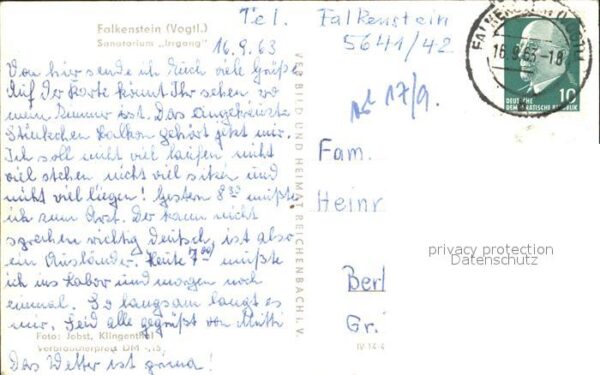 Falkenstein (Vogtl.)
Sanatorium „Irrgang"
16.9.63
Tel. Falkenstein
5641/42
Von hier sende ich Euch viele Grüße
Auf der Karte könnt Ihr sehen wo
mein Zimmer ist. Das angekreuzte
Stückchen Balkon gehört jetzt mir.
Ich soll nicht viel laufen, nicht
viel stehen nicht viel sitzen und
nicht viel liegen! Gestern 8 30 mußte
ich zum Arzt. Der kann nicht
sprechen richtig Deutsch, ist also
ein Ausländer. Heute 7 00 mußte
ich ins Labor und morgen noch
einmal. So langsam langt es
mir. Seid alle gegrüßt von Mutti
Das Wetter ist prima!
Foto: Jobst, Klingenthal
Verbraucherpreis DM
VEB BILD UND HEIMAT REICHENBACH I. V.
17/9.
Fam.
Heinr
Berl
Gr.
IV-14-4
FALKENSTEIN (VOGTL)
16.9.63-18
DEUTSCHE
DEMOKRATISCHE REPUBLIK
10
privacy protection
Datenschutz